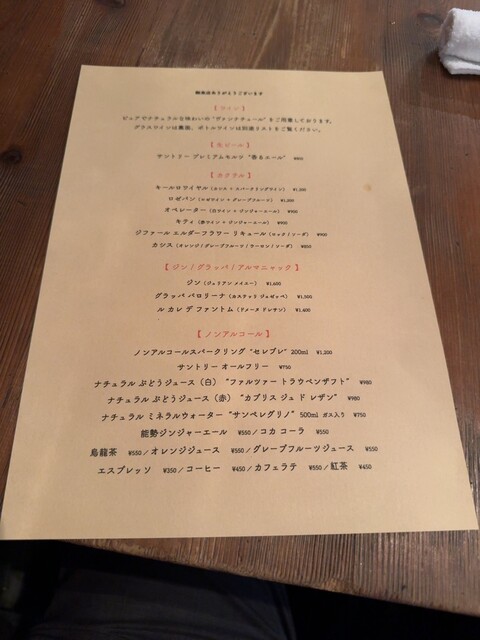 御来店ありがとうございます
【 ワイン 】
ピュアでナチュラルな味わいの"ヴァンナチュール"をご用意しております。
グラスワインは黒板、ボトルワインは別途リストをご覧ください。
【 生ビール 】
サントリー プレミアムモルツ "香るエール" ¥800
【 カクテル 】
キールロワイヤル (カシス × スパークリングワイン) ¥1,200
ロゼパン (ロゼワイン × グレープフルーツ) ¥1,200
オペレーター (白ワイン × ジンジャーエール) ¥900
キティ (赤ワイン × ジンジャーエール) ¥900
ジファール エルダーフラワー リキュール (ロック / ソーダ) ¥900
カシス (オレンジ / グレープフルーツ / ウーロン / ソーダ) ¥850
【 ジン / グラッパ / アルマニャック 】
ジン (ジュリアン メイエー) ¥1,600
グラッパ バローリーナ (カステッリ ジュゼッペ) ¥1,500
ル カレ デ ファントム (ドメーヌ ドレサン) ¥1,600
【 ノンアルコール 】
ノンアルコールスパークリング "セレブレ" 200ml ¥1,200
サントリー オールフリー ¥750
ナチュラル ぶどうジュース (白) "ファルツァー トラウベンザフト" ¥980
ナチュラル ぶどうジュース (赤) "カプリス ジュ ド レザン" ¥980
ナチュラル ミネラルウォーター "サンペレグリノ" 500ml ガス入り ¥750
能勢ジンジャーエール ¥550 / コカ コーラ ¥550
烏龍茶 ¥550 / オレンジジュース ¥550 / グレープフルーツジュース ¥550
エスプレッソ ¥350 / コーヒー ¥450 / カフェラテ ¥550 / 紅茶 ¥450